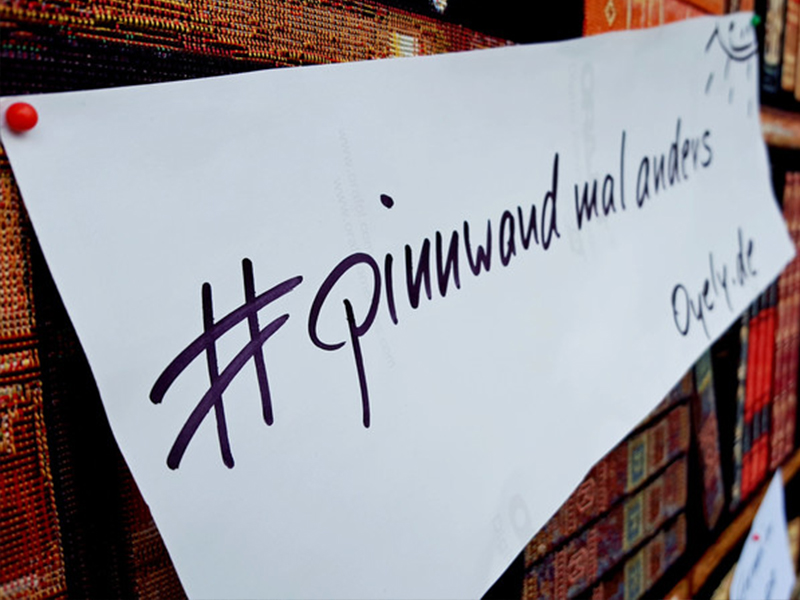 #pinnwand mal anders
Oyely.de